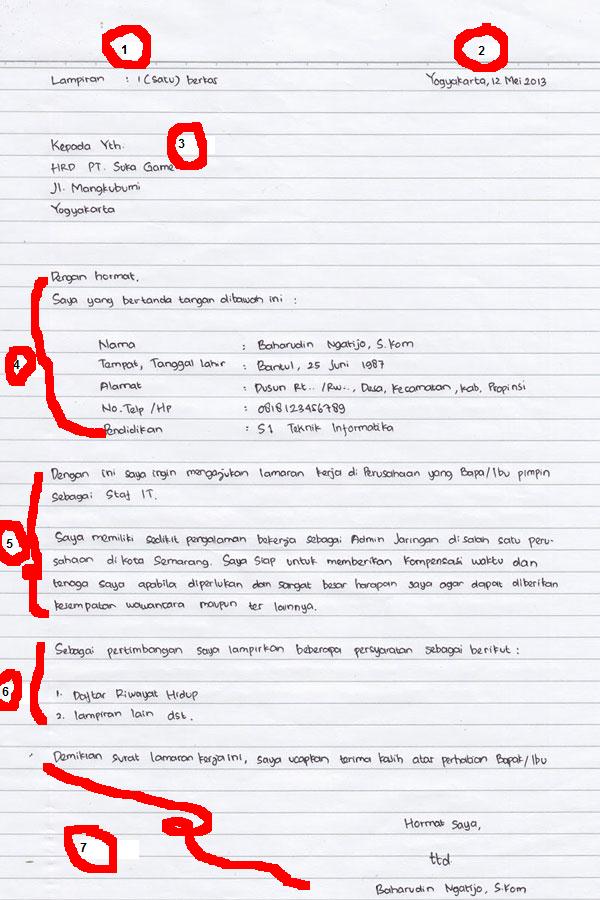 1
2
Lampiran : 1 (satu) berkas
Yogyakarta, 12 Mei 2013
Kepada Yth.
3
HRD PT. Suka Game
Jl. Mangkubumi
Yogyakarta
Dengan hormat,
Saya yang bertanda tangan dibawah ini :
4
Nama : Baharudin Ngatijo, S.Kom
Tempat, Tanggal lahir : Bantul, 25 Juni 1987
Alamat : Dusun Rt.. /Rw.., Desa, Kecamatan, Kab, Propinsi
No. Telp /Hp : 0818123456789
Pendidikan : S1 Teknik Informatika
Dengan ini saya ingin mengajukan lamaran kerja di Perusahaan yang Bapa/Ibu pimpin
Sebagai Staf IT.
5
Saya memiliki sedikit pengalaman bekerja sebagai Admin Jaringan disalah satu peru-
sahaan di kota Semarang. Saya siap untuk memberikan kompensasi waktu dan
tenaga saya apabila diperlukan dan sangat besar harapan saya agar dapat diberikan
kesempatan wawancara maupun tes lainnya.
Sebagai pertimbangan saya lampirkan beberapa persyaratan sebagai berikut :
6
1. Daftar Riwayat Hidup
2. lampiran lain dst.
Demikian surat lamaran kerja ini, saya ucapkan terima kasih atas perhatian Bapak/Ibu
Hormat Saya,
7
ttd
Baharudin Ngatijo, S.Kom